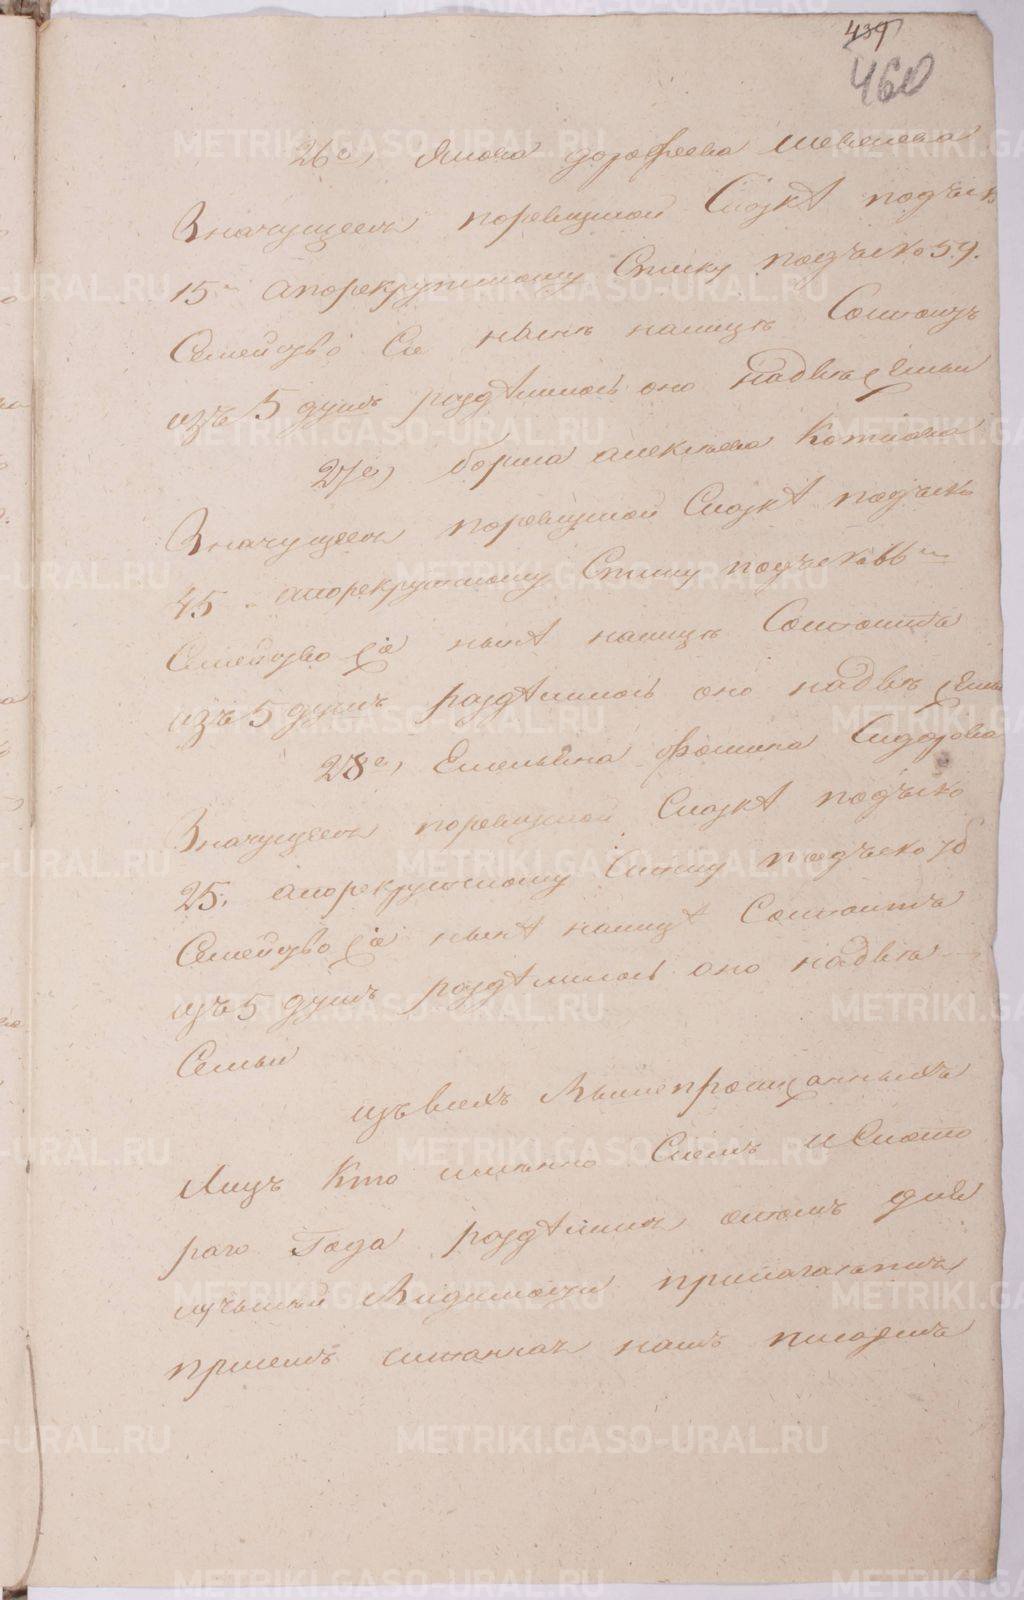 439
460
26е, Якова дорофеева шевелева
Значущеесь поревизкой Сказкѣ подъ №
15м апорекрутскому Списку подъ № 59.
Семейство Сіе нынѣ налицѣ Состоитъ
изъ 5 душъ раздѣлилось оно надвѣ Семьи
27е, бориса алексѣева Котлова
Значущеесь поревизкой Сказкѣ подъ №
45 апорекрутскому Списку подъ № 66м
Семейство Сіе нынѣ налицѣ Состоитъ
изъ 5 душъ раздѣлилось оно надвѣ Семьи
28е, Емельяна Фомина Сидорова
Значущеесь поревизкой Сказкѣ подъ №
25. апорекрутскому Списку подъ № 76
Семейство Сіе нынѣ налицѣ Состоитъ
изъ 5 душъ раздѣлилось оно надвѣ
Семьи
изъ всехъ Вышепрописанныхъ
Лицъ Кто именно Скемъ и Ското
раго Года раздѣлился отомъ для
лучьшей Видимости прилагаетъ
присемъ
METRIKI.GASO-URAL.RU